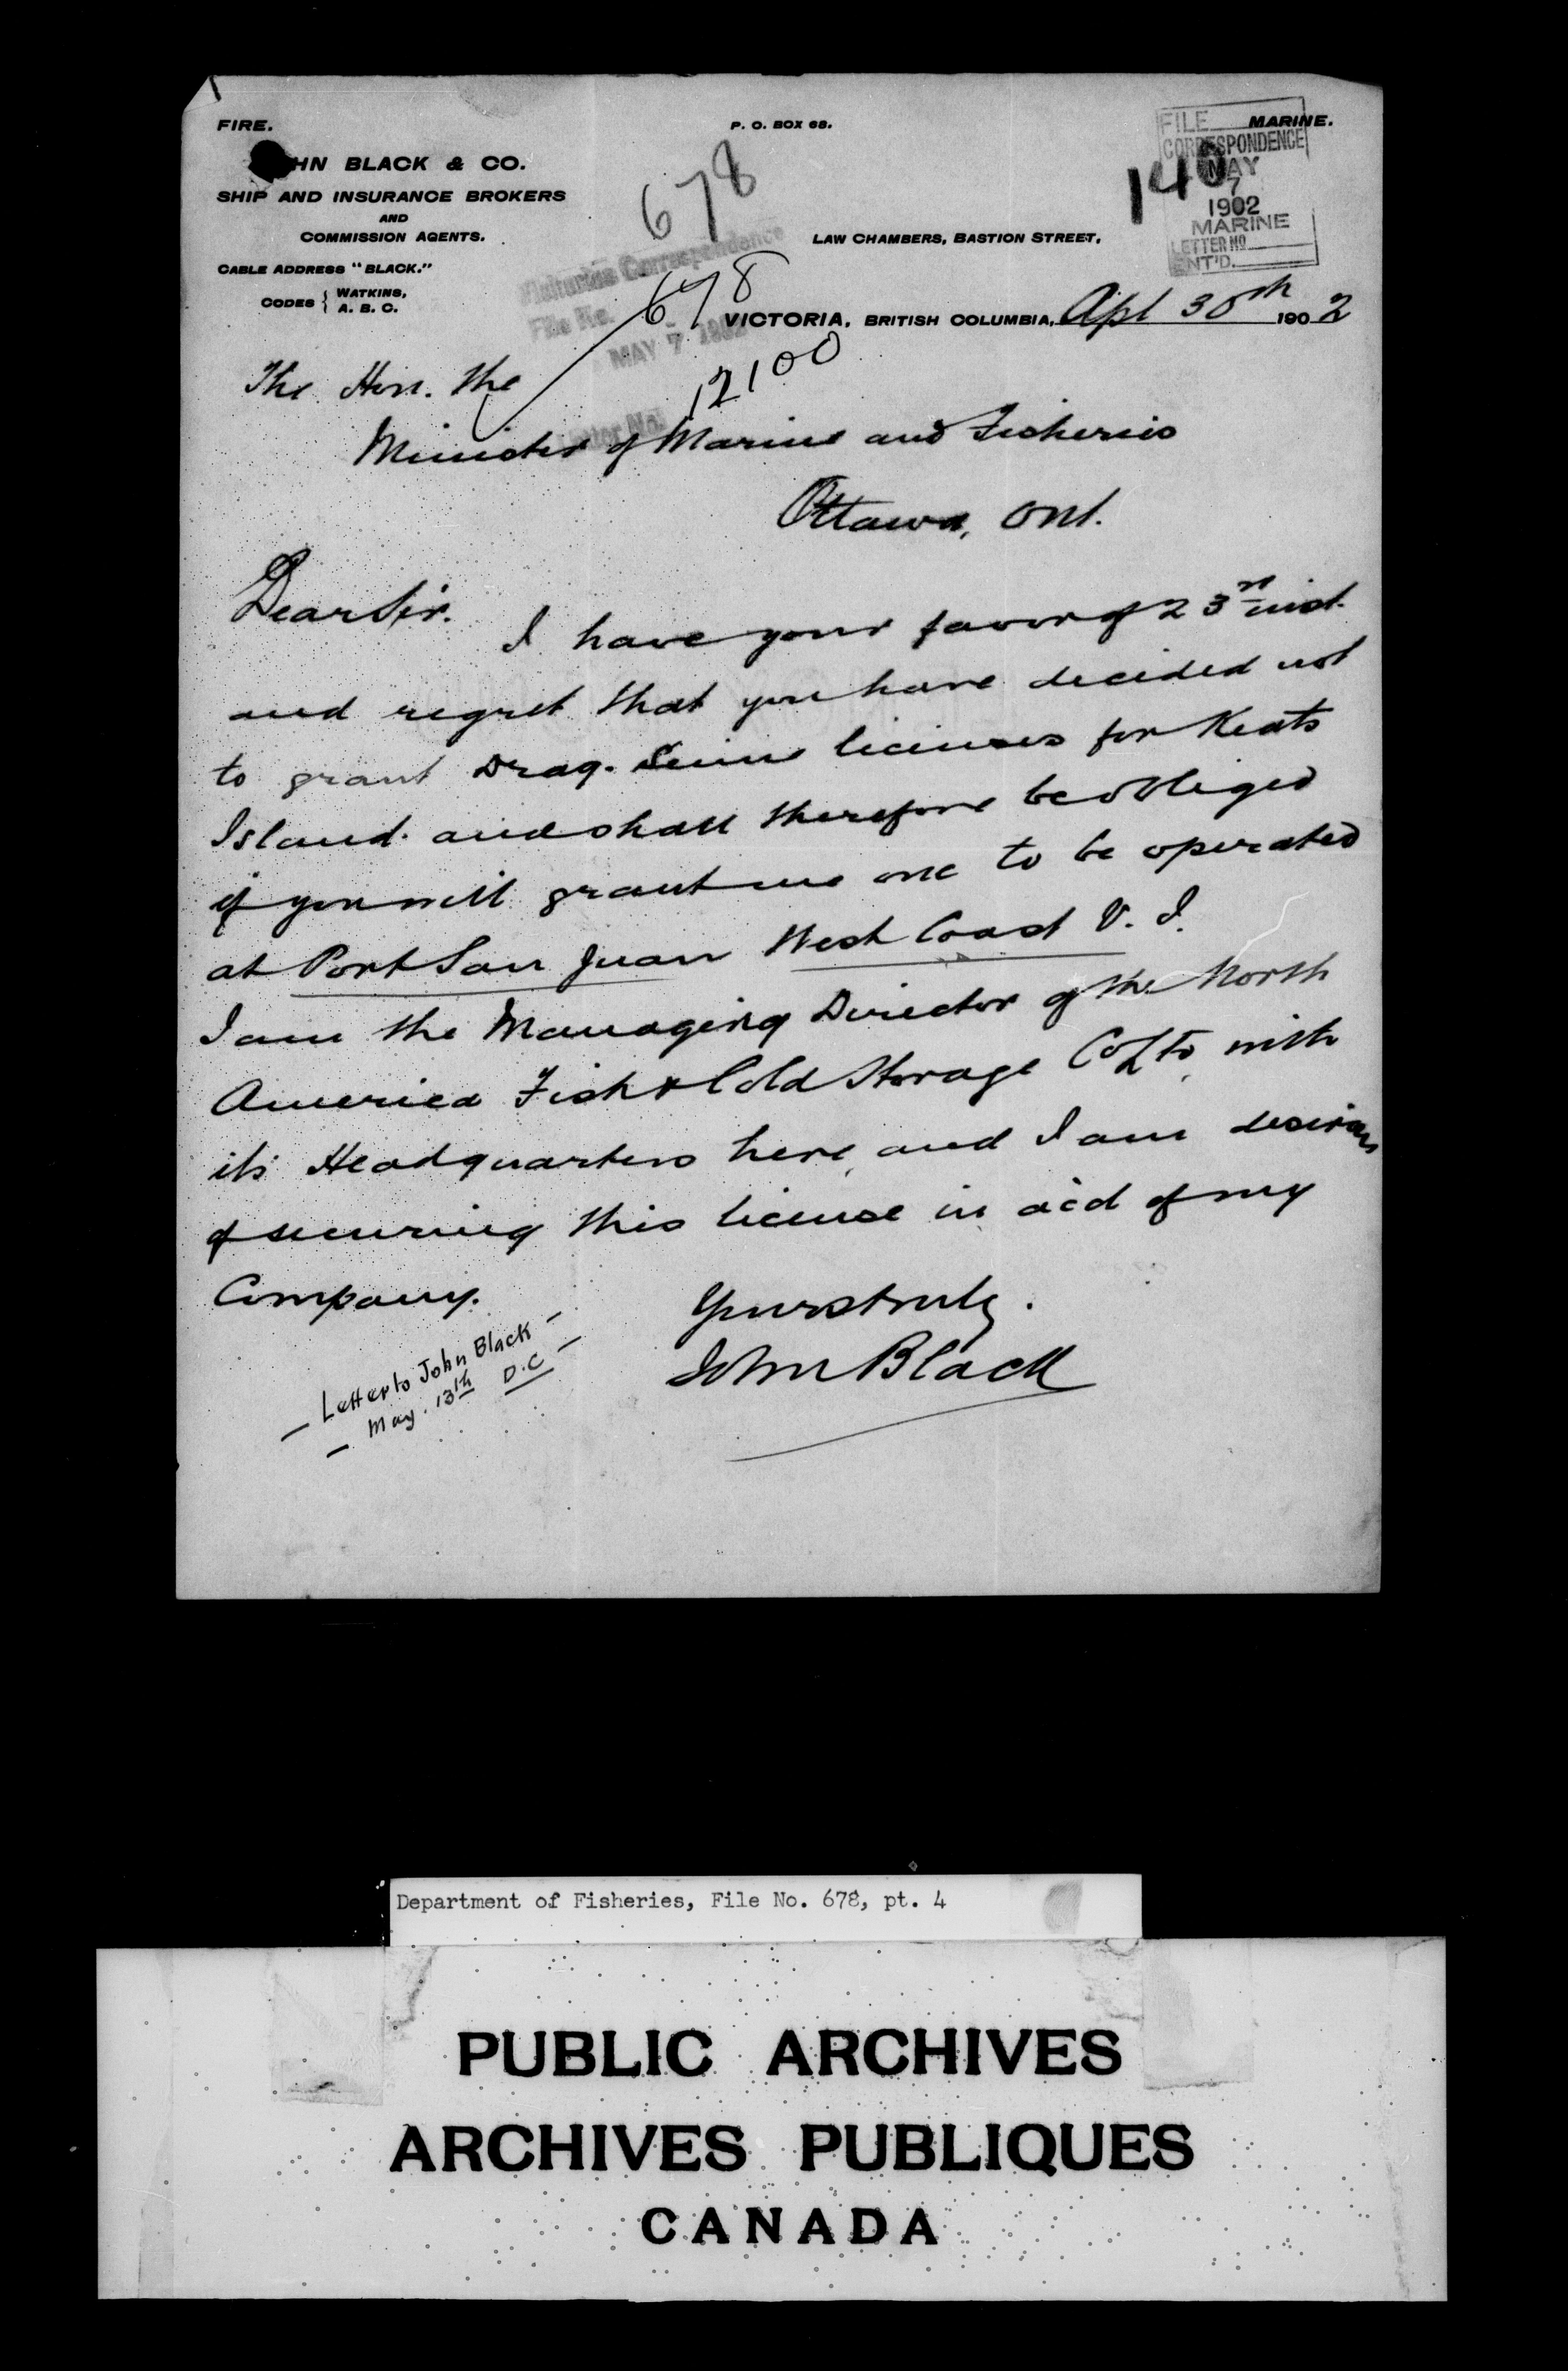 FIRE.
P. O. BOX 68.
MARINE.
HN BLACK & CO.
SHIP AND INSURANCE BROKERS
AND
COMMISSION AGENTS.
CABLE ADDRESS "BLACK."
CODES { WATKINS,
A. B. C.
678
FILE
CORRESPONDENCE
MAY
7
1902
MARINE
LETTER NO
ENT'D.
LAW CHAMBERS, BASTION STREET,
Fisheries Correspondence
File No. 678
MAY 7 1902
12100
Letter No.
VICTORIA, BRITISH COLUMBIA, Apl 30th 1902
The Hon. the
Minister of Marine and Fisheries
Ottawa, Ont.
Dear Sir.
I have your favor of 23rd inst.
and regret that you have decided not
to grant Drag. Seine licenses for Keats
Island. and shall therefore be obliged
if you will grant me one to be operated
at Port San Juan West Coast V. I.
I am the Managing Director of the North
America Fish & Cold Storage Co Ltd, with
its Headquarters here, and I am desirous
of securing this license in aid of my
Company.
Yours truly.
John Black
— Letter to John Black —
— May. 13th D.C —
Department of Fisheries, File No. 678, pt. 4
PUBLIC ARCHIVES
ARCHIVES PUBLIQUES
CANADA